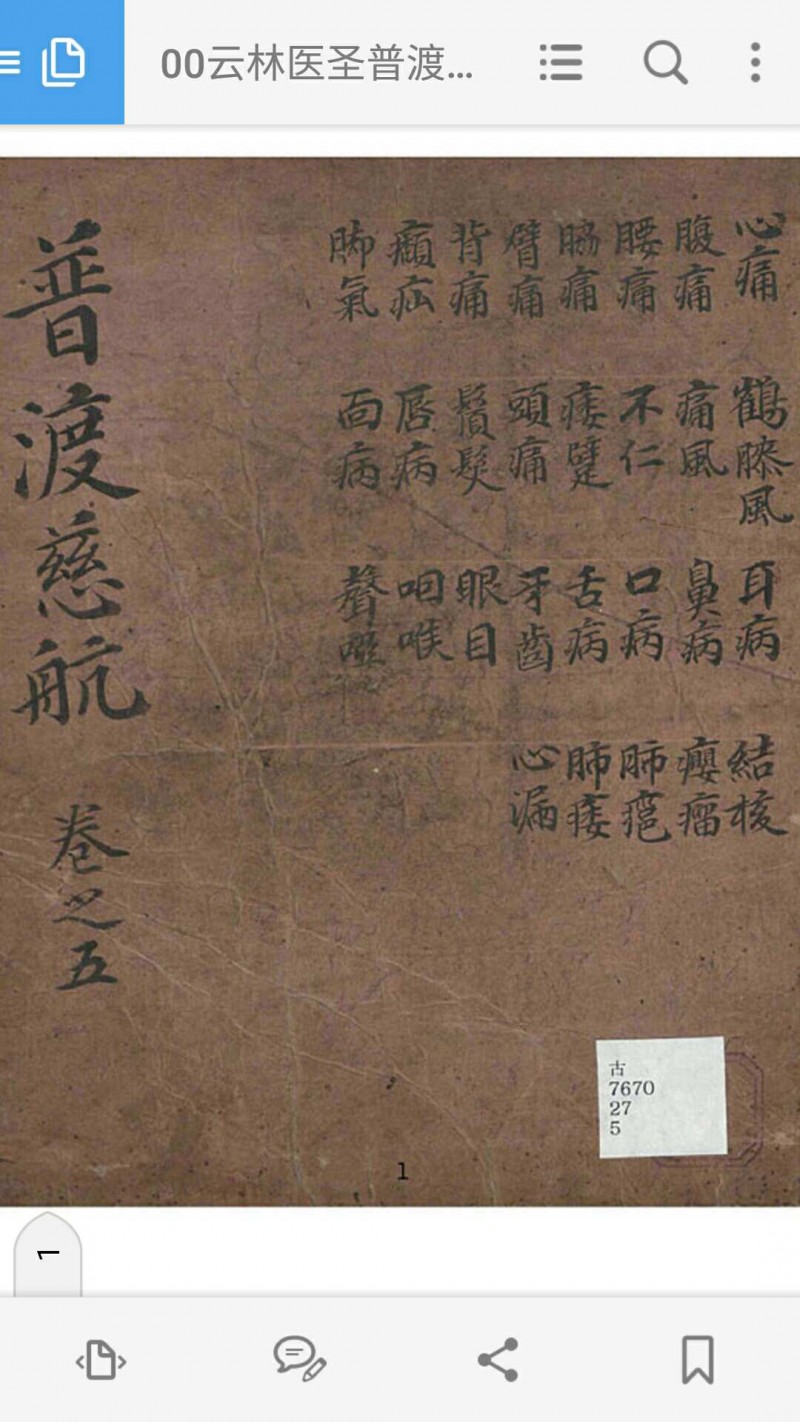 00云林医圣普渡...
心痛 鶴膝風 耳病 結核
腹痛 痛風 鼻病 癭瘤
腰痛 不仁 口病 肺㿈
脇痛 痿躄 舌病 肺痿
臂痛 頭痛 牙齒 心漏
背痛 鬚髮 眼目
疝 唇病 咽喉
脚氣 面病 聲啞
普渡慈航 卷之五
古
7670
27
5
1
1